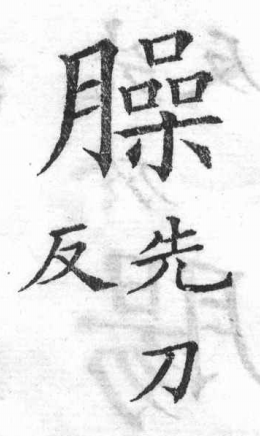 臊
先刀
反